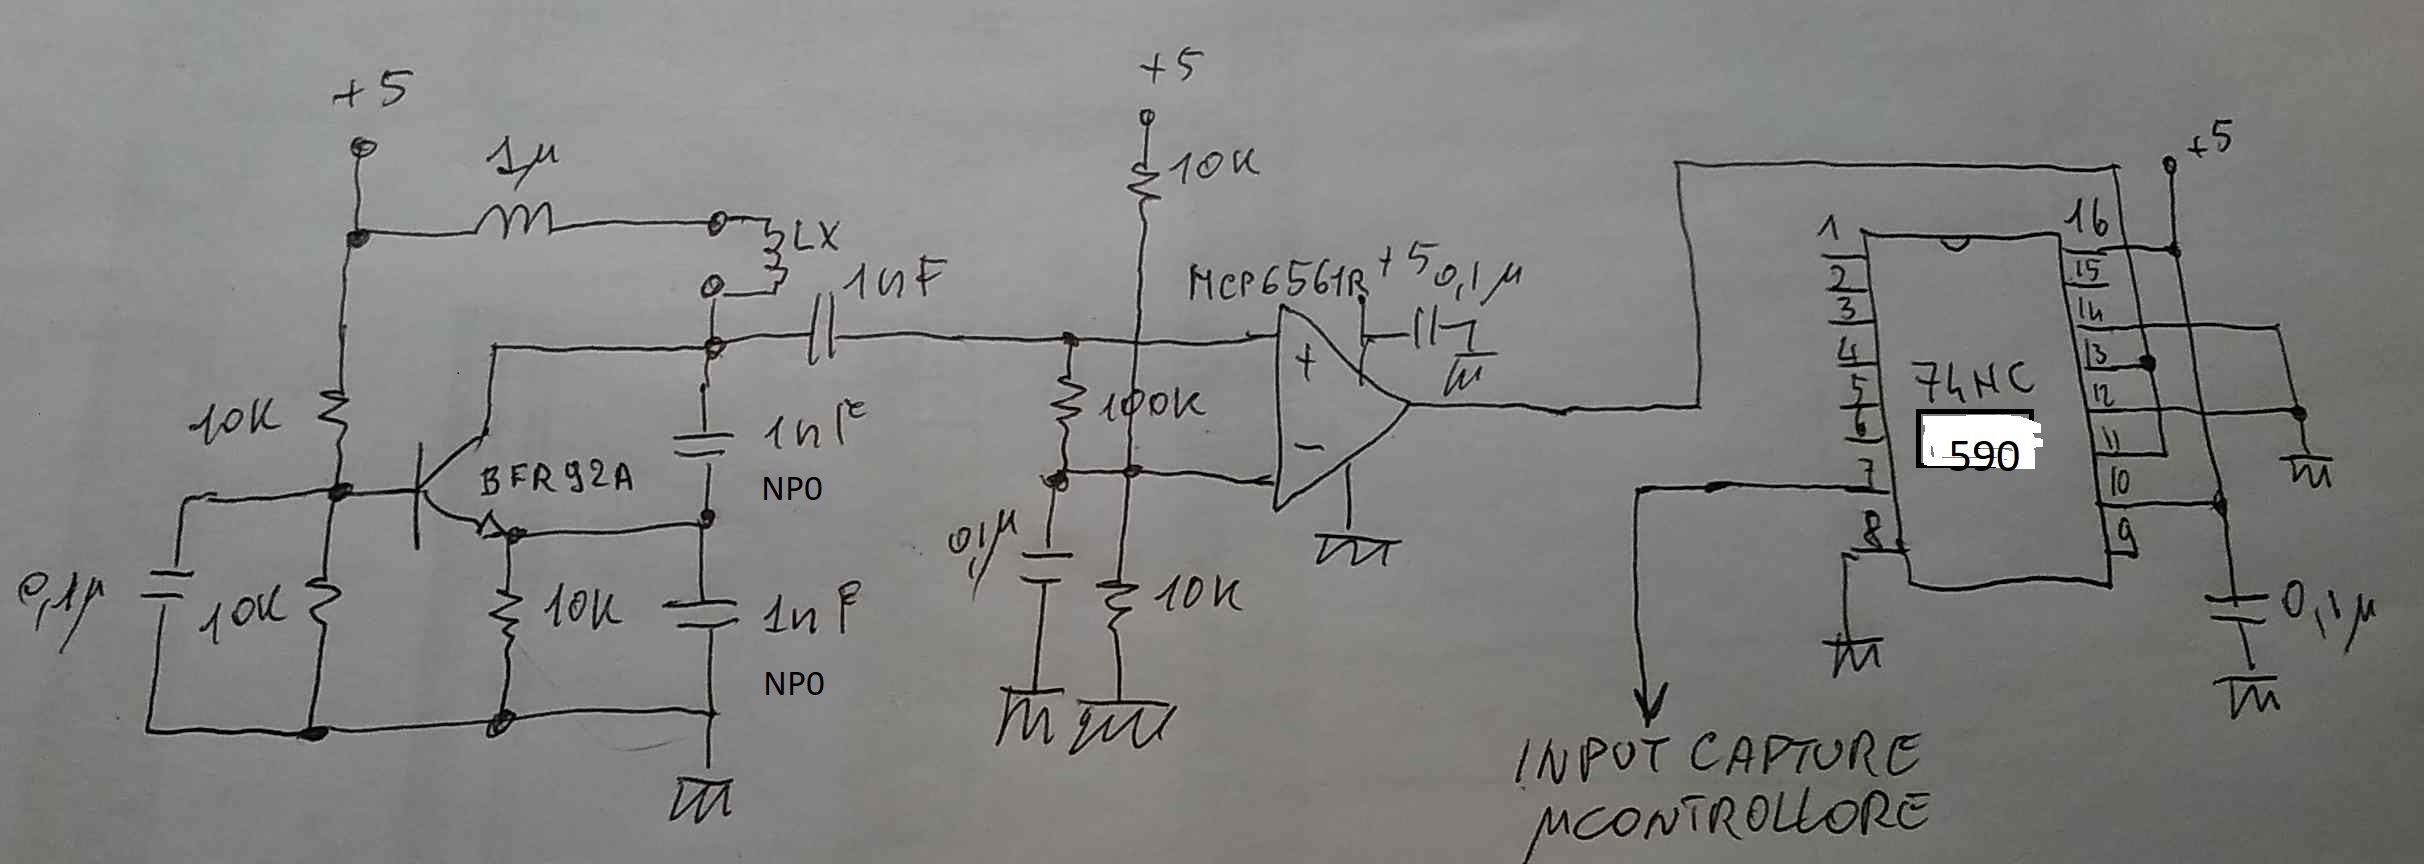 +5
1µ
LX
1nF
10K
BFR92A
1nF
NP0
0,1µ
10K
10K
1nF
NP0
+5
10K
100K
0,1µ
10K
MCP6561R
+5
0,1µ
+
−
1
2
3
4
5
6
7
8
74HC
590
16
15
14
13
12
11
10
9
+5
0,1µ
INPUT CAPTURE
µCONTROLLORE